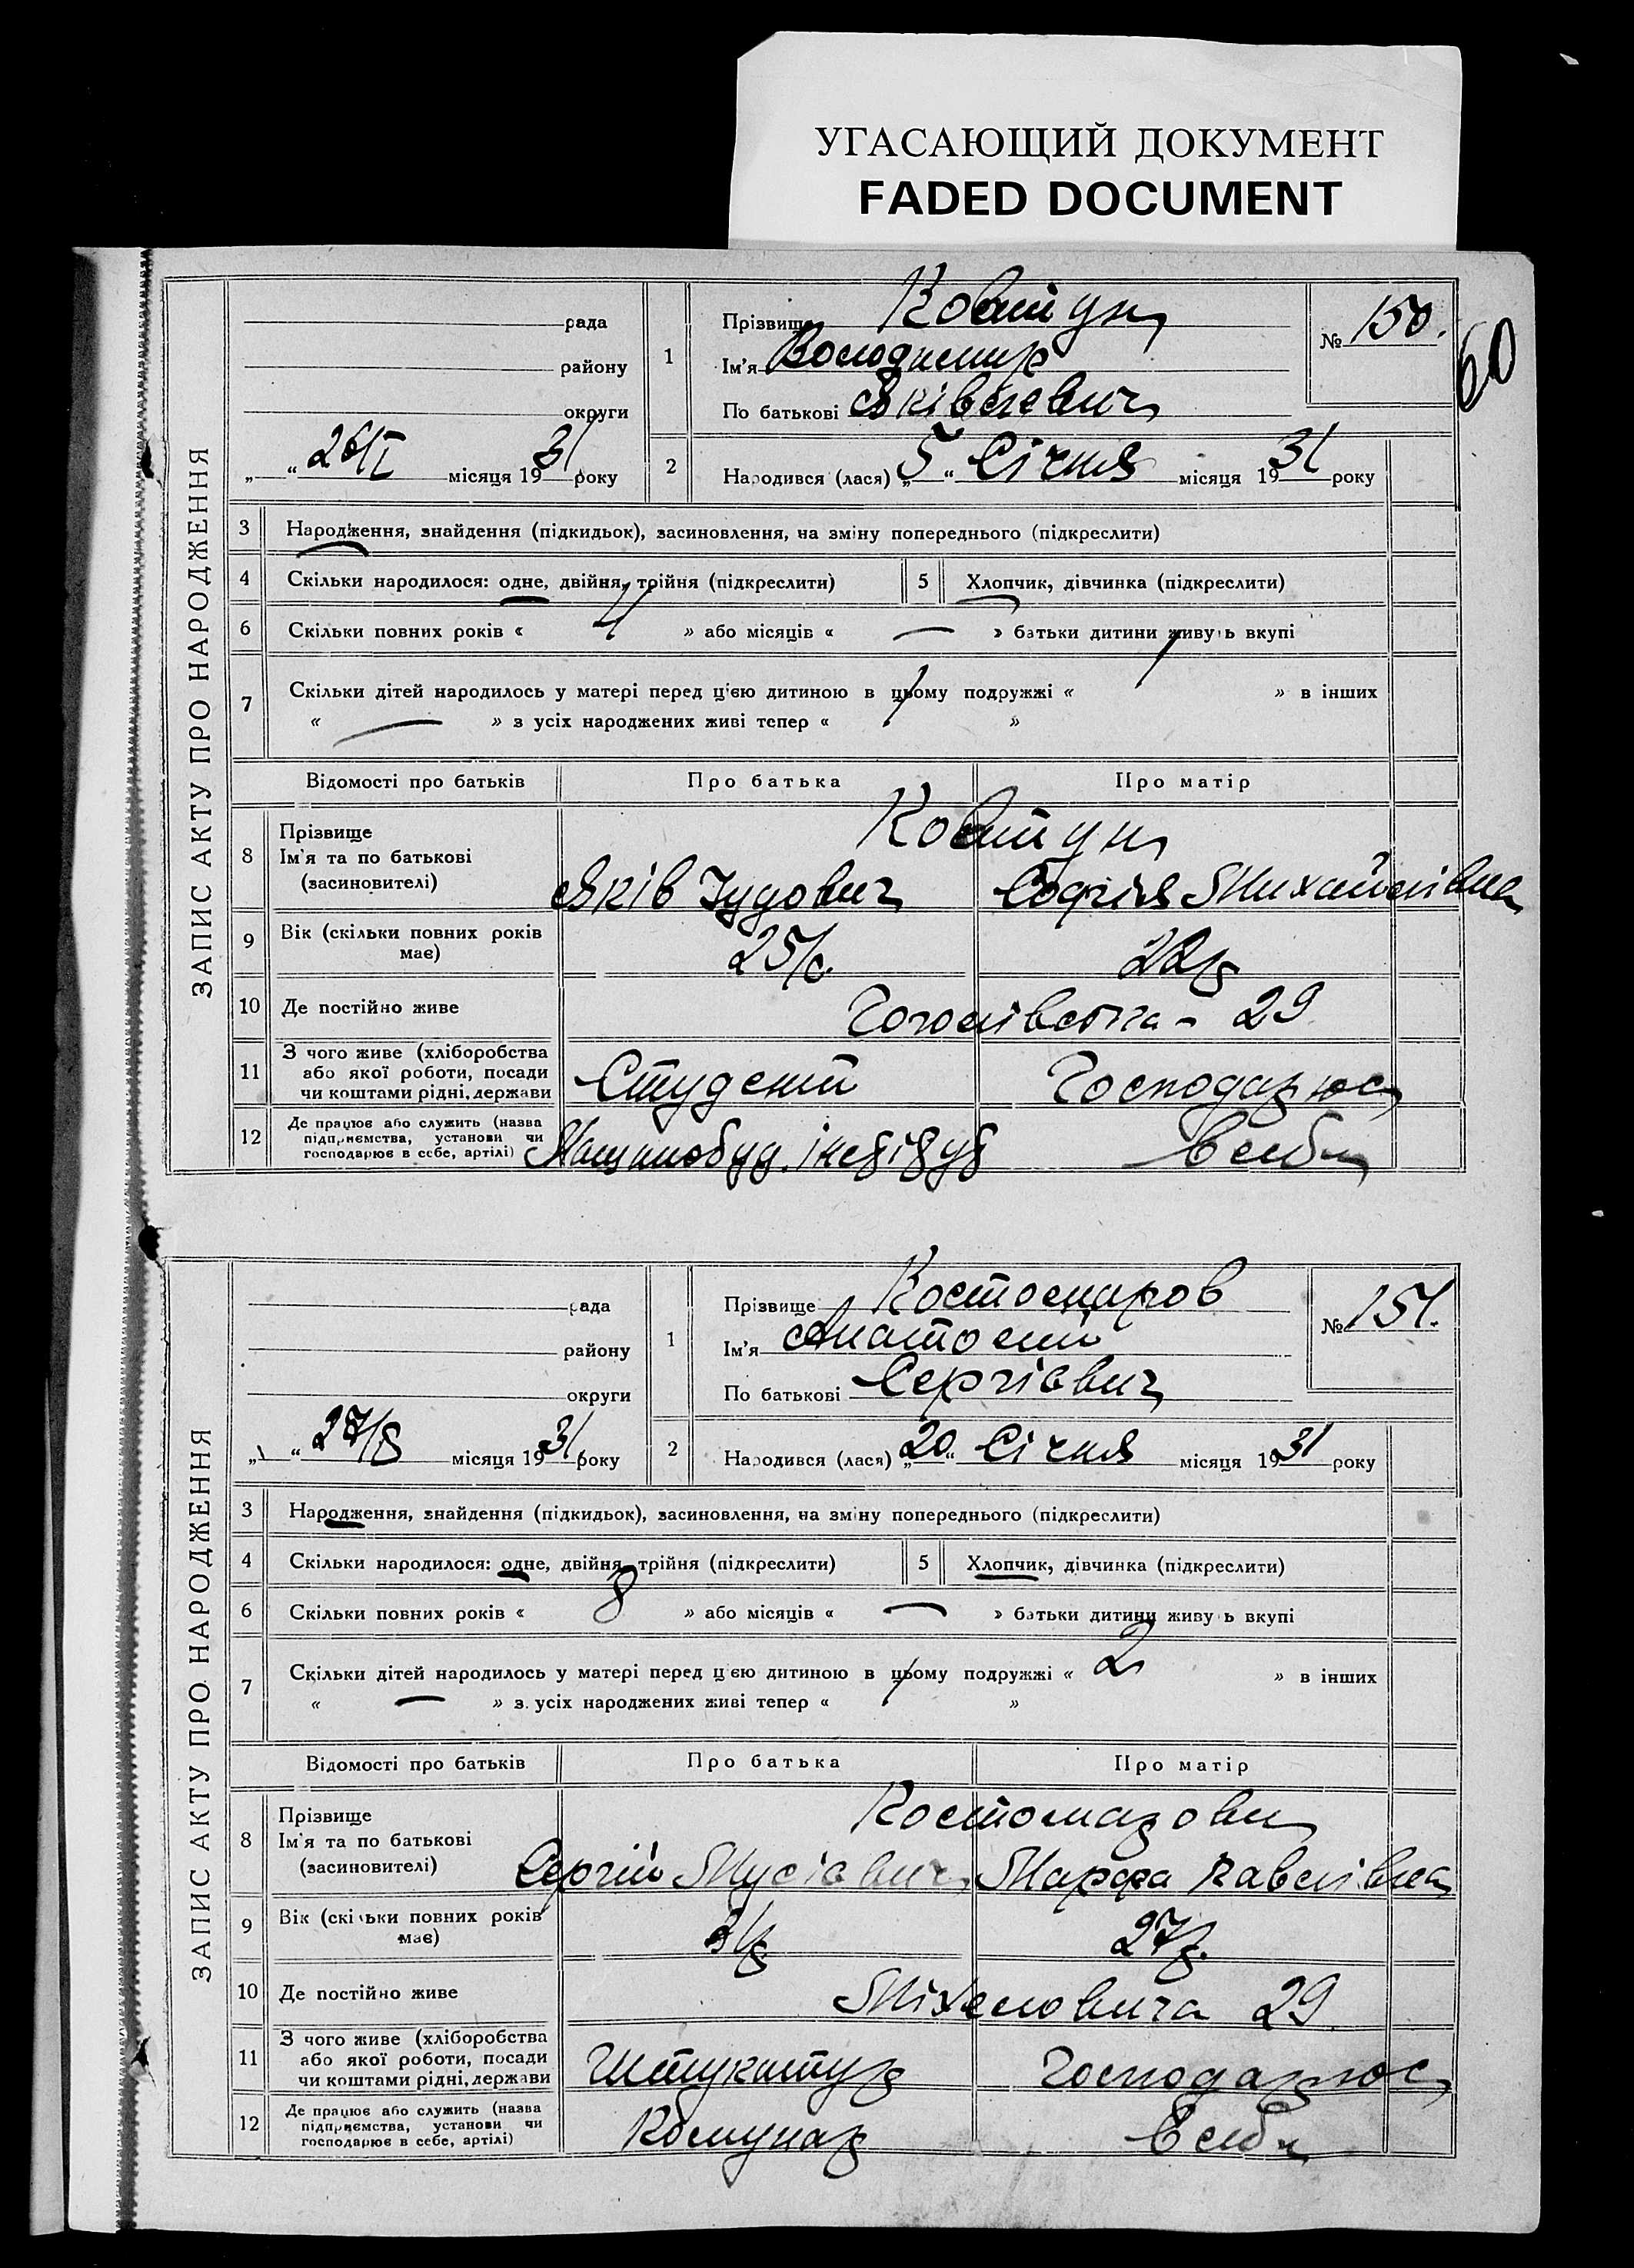 УГАСАЮЩИЙ ДОКУМЕНТ
FADED DOCUMENT
60
ЗАПИС АКТУ ПРО НАРОДЖЕННЯ
рада
району
округи
„ “ 26/I місяця 1931 року
1 Прізвище Ковтун
Ім'я Володимир
По батькові Яківлевич
№ 150.
2 Народився (лася) „5“ Січня місяця 1931 року
3 Народження, знайдення (підкидьок), засиновлення, на зміну попереднього (підкреслити)
4 Скільки народилося: одне, двійня, трійня (підкреслити) 5 Хлопчик, дівчинка (підкреслити)
6 Скільки повних років « 4 » або місяців « — » батьки дитини живуть вкупі
7 Скільки дітей народилось у матері перед цією дитиною в цьому подружжі « 1 » в інших
« — » з усіх народжених живі тепер « 1 »
Відомості про батьків Про батька Про матір
8 Прізвище Ковтун
Ім'я та по батькові
(засиновителі) Яків Іудович Софія Михайлівна
9 Вік (скільки повних років має) 25/р. 22/р
10 Де постійно живе Гоголівська - 29
11 З чого живе (хліборобства
або якої роботи, посади
чи коштами рідні, держави Студент Господарює
12 Де працює або служить (назва
підприємства, установи чи
господарює в себе, артілі) Машинобуд. в себе
ЗАПИС АКТУ ПРО НАРОДЖЕННЯ
рада
району
округи
„ “ 27/ місяця 1931 року
1 Прізвище Костомаров
Ім'я Анатолій
По батькові Сергієвич
№ 151.
2 Народився (лася) „20“ Січня місяця 1931 року
3 Народження, знайдення (підкидьок), засиновлення, на зміну попереднього (підкреслити)
4 Скільки народилося: одне, двійня, трійня (підкреслити) 5 Хлопчик, дівчинка (підкреслити)
6 Скільки повних років « 8 » або місяців « — » батьки дитини живуть вкупі
7 Скільки дітей народилось у матері перед цією дитиною в цьому подружжі « 2 » в інших
« — » з усіх народжених живі тепер « 1 »
Відомості про батьків Про батька Про матір
8 Прізвище Костомарови
Ім'я та по батькові
(засиновителі) Сергій Мусієвич Марфа Павлівна
9 Вік (скільки повних років має) 31/р 27/р.
10 Де постійно живе 29
11 З чого живе (хліборобства
або якої роботи, посади
чи коштами рідні, держави Штукатур Господарює
12 Де працює або служить (назва
підприємства, установи чи
господарює в себе, артілі) Комунар в себе